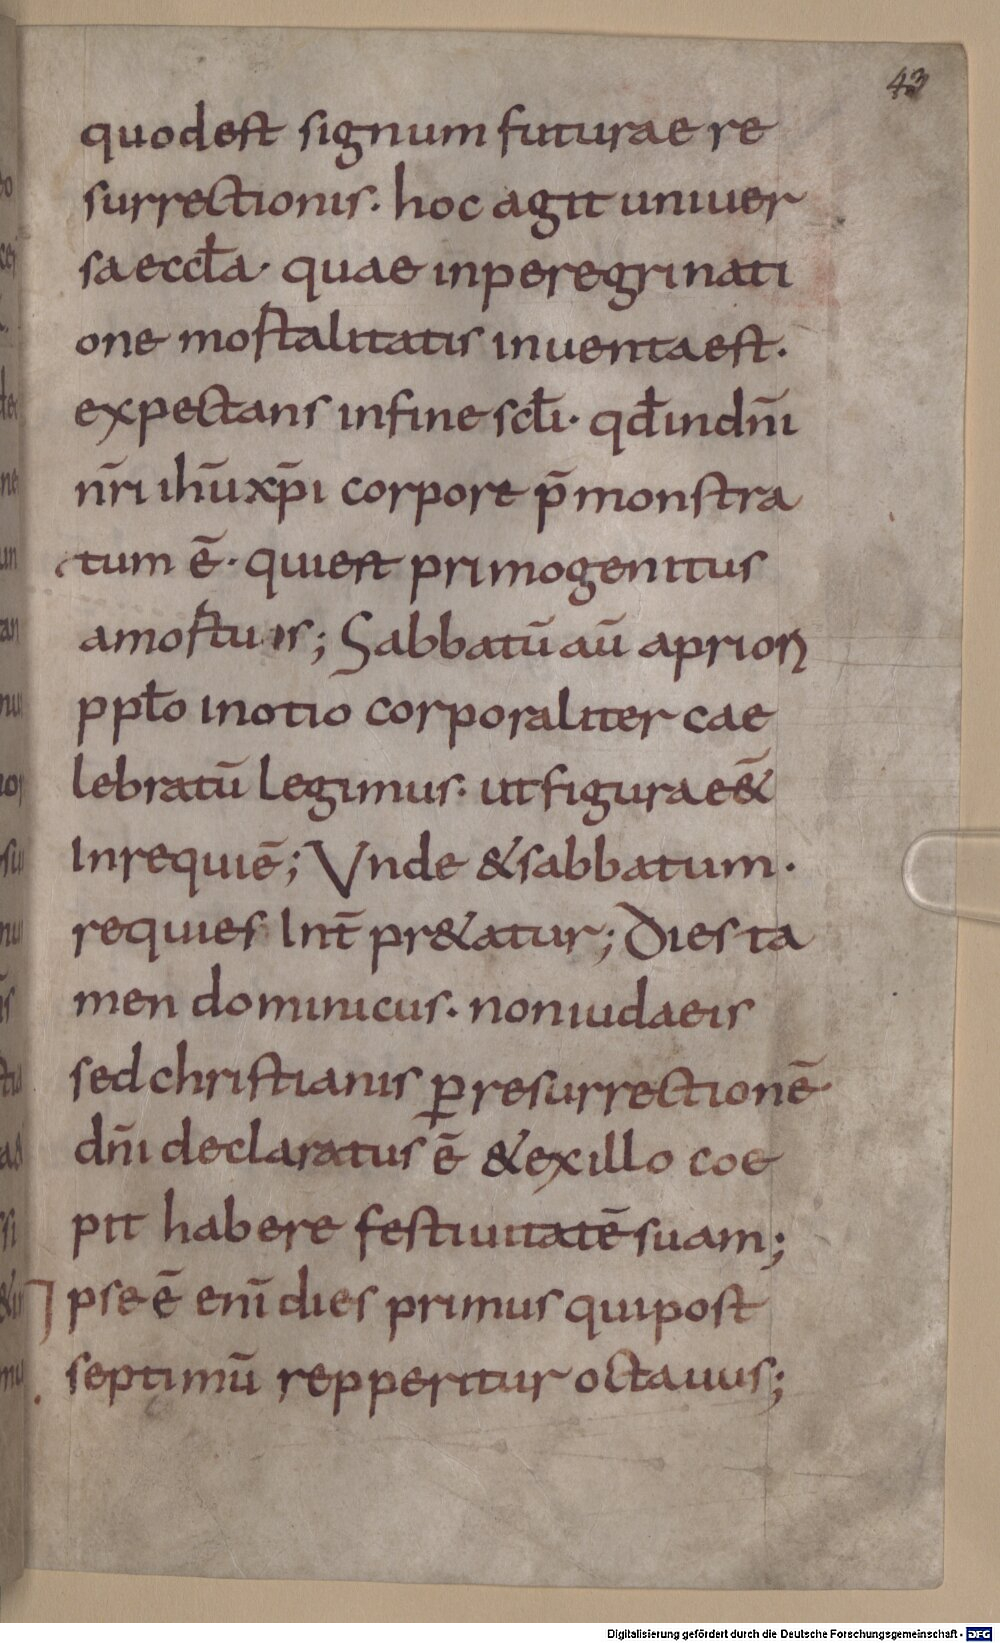 43
quodest signum futurae re
surrectionis. hoc agit uniuer
sa eccƚa. quae inperegrinati
one mortalitatis inuentaest.
expectans infine scƚi. qđ indn̄i
n̄ri ihū xp̄i corpore p̄monstra
tum ē. quiest primogenitus
amortuis; Sabbatū aū apriorꝫ
ppƚo inotio corporaliter cae
lebratū legimus. ut figura eēt
Inrequiē; Vnde &sabbatum.
requies Int̄ pr&atur; Dies ta
men dominicus. non iudaeis
sed christianis ꝑ resurrectionē
dn̄i declaratus ē &exillo coe
pit habere festiuitatē suam;
Ipse ē enī dies primus quipost
septimū repperitur octauus;
Digitalisierung gefördert durch die Deutsche Forschungsgemeinschaft - DFG